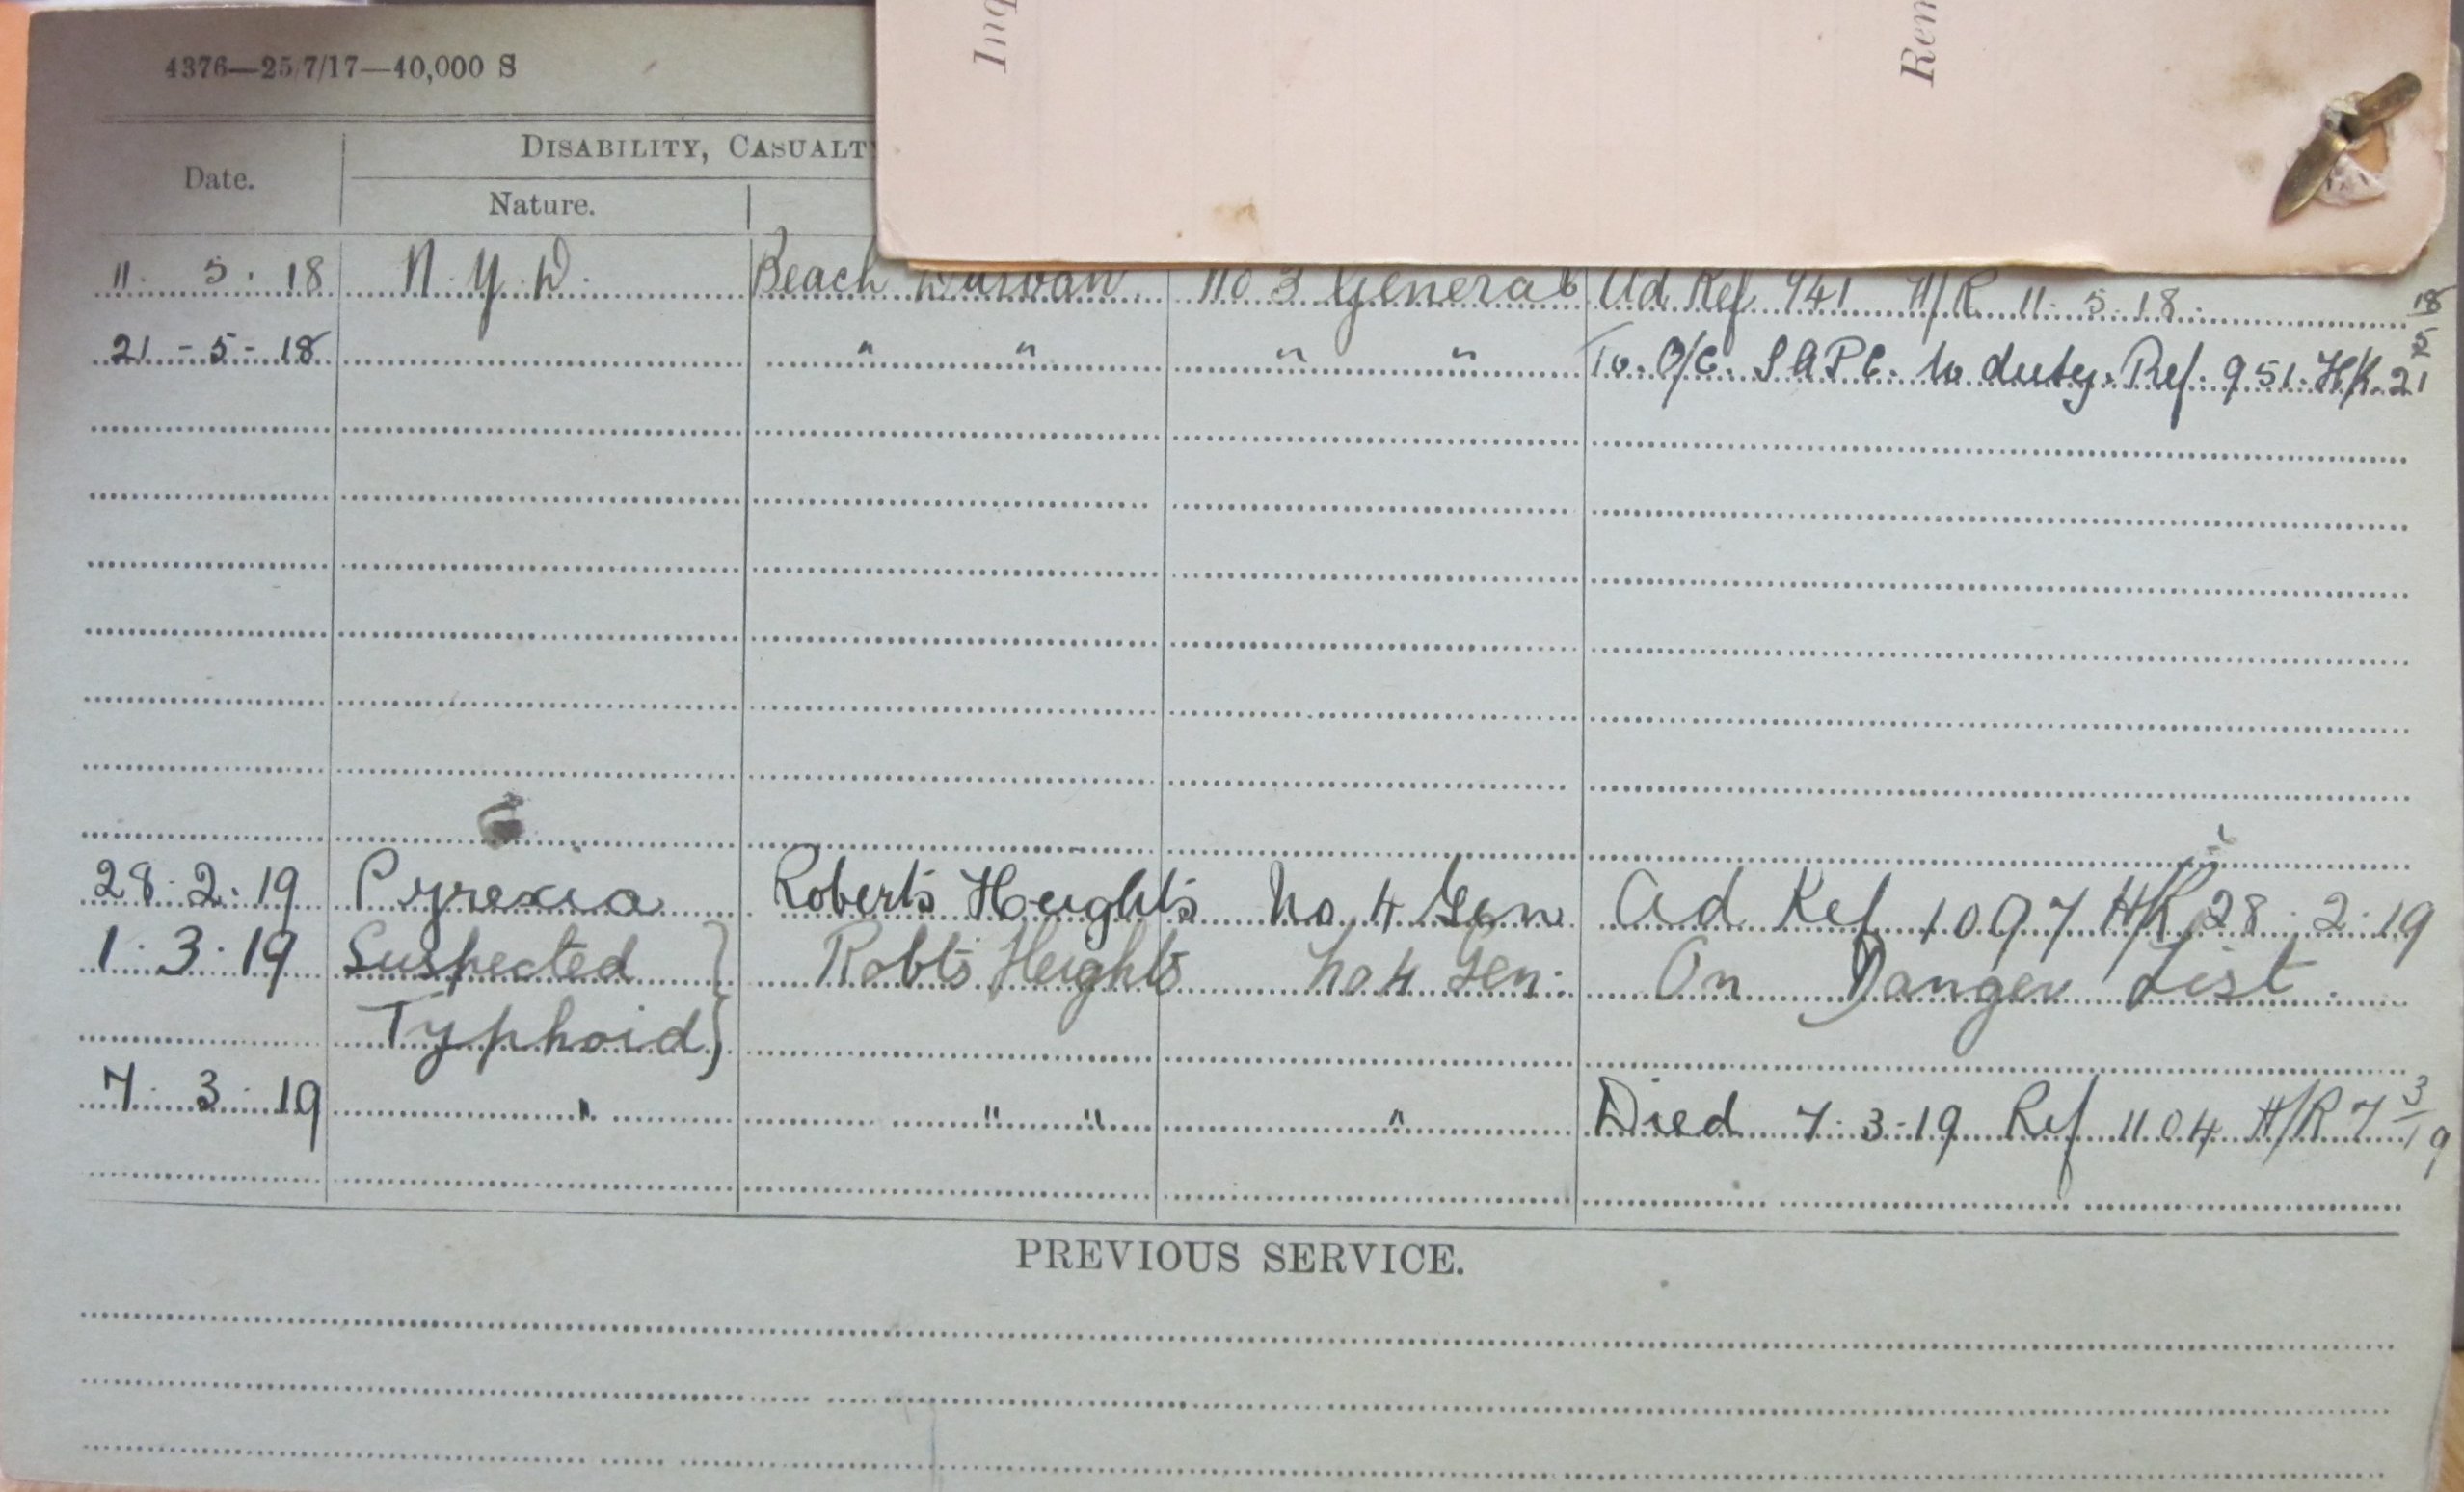 Inq
Rem
4376—25/7/17—40,000 S
DISABILITY, CASUALTY
Date.
Nature.
11. 5. 18 N.Y.D. Beach Durban No 3 General Ad Ref 941 H/R 11.5.18.
21-5-18 " " " " To. O/C. S A P C. to duty. Ref. 951. H/R. 21/5/18
28.2.19 Pyrexia Roberts Heights No 4 Gen Ad Ref 1097 H/R 28.2.19
1.3.19 Suspected } Robts Heights No 4 Gen. On Danger List.
Typhoid }
7.3.19 " " " " Died 7.3.19 Ref 1104 H/R 7 3/19
PREVIOUS SERVICE.